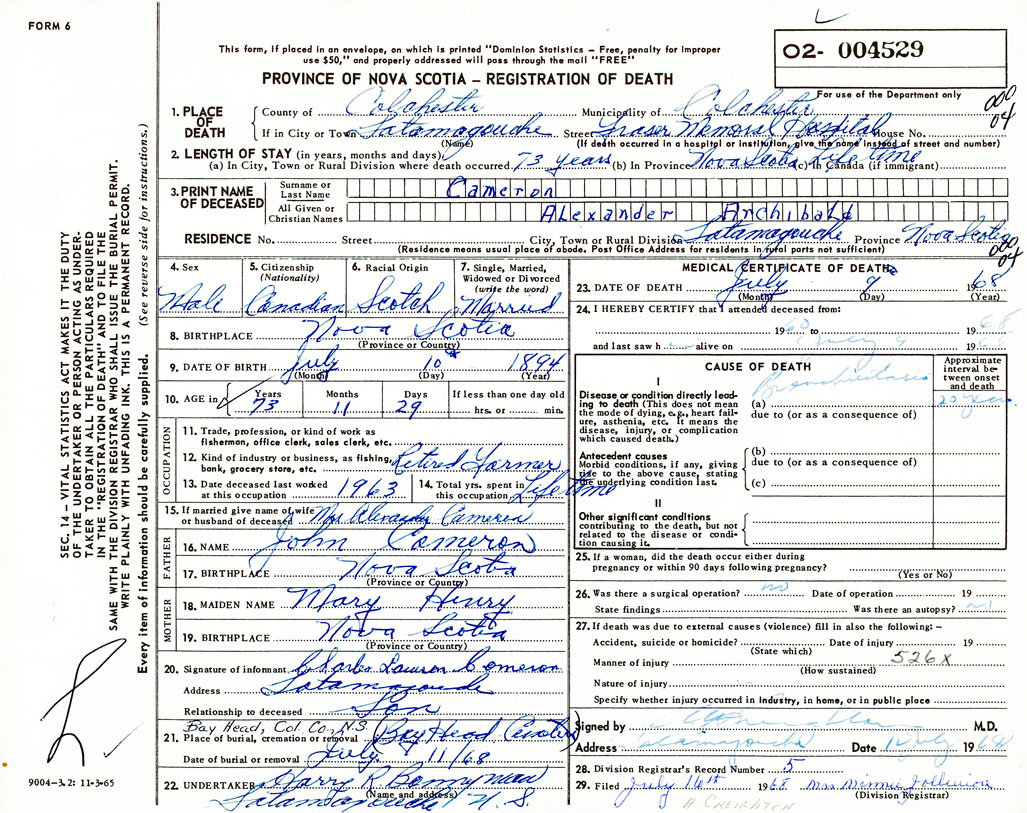 FORM 6
This form, if placed in an envelope, on which is printed "Dominion Statistics – Free, penalty for improper
use $50," and properly addressed will pass through the mail "FREE"
PROVINCE OF NOVA SCOTIA – REGISTRATION OF DEATH
02- 004529
For use of the Department only
000
04
1. PLACE OF DEATH County of Colchester Municipality of Colchester
If in City or Town Tatamagouche Street Fraser Memorial Hospital House No.
(Name) (If death occurred in a hospital or institution, give the name instead of street and number)
2. LENGTH OF STAY (in years, months and days)
(a) In City, Town or Rural Division where death occurred 73 years (b) In Province Nova Scotia (c) In Canada (if immigrant) Life time
3. PRINT NAME OF DECEASED
Surname or Last Name Cameron
All Given or Christian Names Alexander Archibald
RESIDENCE No. Street City, Town or Rural Division Tatamagouche Province Nova Scotia
(Residence means usual place of abode. Post Office Address for residents in rural parts not sufficient)
000
04
4. Sex Male
5. Citizenship (Nationality) Canadian
6. Racial Origin Scotch
7. Single, Married, Widowed or Divorced (write the word) Married
8. BIRTHPLACE Nova Scotia
(Province or Country)
9. DATE OF BIRTH July 10 1894
(Month) (Day) (Year)
10. AGE in Years 73 Months 11 Days 29 If less than one day old hrs. or min.
OCCUPATION
11. Trade, profession, or kind of work as fisherman, office clerk, sales clerk, etc.
12. Kind of industry or business, as fishing, bank, grocery store, etc. Retired Farmer
13. Date deceased last worked at this occupation 1963
14. Total yrs. spent in this occupation Life time
15. If married give name of wife or husband of deceased Mrs Alexander Cameron
FATHER
16. NAME John Cameron
17. BIRTHPLACE Nova Scotia
(Province or Country)
MOTHER
18. MAIDEN NAME Mary Henry
19. BIRTHPLACE Nova Scotia
(Province or Country)
20. Signature of informant Charles Lawson Cameron
Address Tatamagouche
Relationship to deceased Son
Bay Head, Col. Co., N.S.
21. Place of burial, cremation or removal Bay Head
Date of burial or removal July 11/68
22. UNDERTAKER Harry R Bonnyman
(Name and address)
Tatamagouche N. S.
MEDICAL CERTIFICATE OF DEATH
23. DATE OF DEATH July 9 1968
(Month) (Day) (Year)
24. I HEREBY CERTIFY that I attended deceased from:
1960 to 1968
and last saw h alive on July 9 1968
CAUSE OF DEATH
Approximate interval between onset and death
I
Disease or condition directly leading to death (This does not mean the mode of dying, e.g., heart failure, asthenia, etc. It means the disease, injury, or complication which caused death.)
(a) Bronchiectasis 20 years
due to (or as a consequence of)
Antecedent causes
Morbid conditions, if any, giving rise to the above cause, stating the underlying condition last.
(b)
due to (or as a consequence of)
(c)
II
Other significant conditions contributing to the death, but not related to the disease or condition causing it.
25. If a woman, did the death occur either during pregnancy or within 90 days following pregnancy?
(Yes or No)
26. Was there a surgical operation? no Date of operation 19
State findings Was there an autopsy? no
27. If death was due to external causes (violence) fill in also the following: –
Accident, suicide or homicide? Date of injury 19
(State which)
Manner of injury 526X
(How sustained)
Nature of injury
Specify whether injury occurred in industry, in home, or in public place
Signed by M.D.
Address Tatamagouche Date July 196
28. Division Registrar's Record Number 5
29. Filed July 16th 1968 Mrs Minnie
(Division Registrar)
H CREIGHTON
SEC. 14 – VITAL STATISTICS ACT MAKES IT THE DUTY
OF THE UNDERTAKER OR PERSON ACTING AS UNDER-
TAKER TO OBTAIN ALL THE PARTICULARS REQUIRED
IN THE "REGISTRATION OF DEATH" AND TO FILE THE
SAME WITH THE DIVISION REGISTRAR WHO SHALL ISSUE THE BURIAL PERMIT.
WRITE PLAINLY WITH UNFADING INK. THIS IS A PERMANENT RECORD.
Every item of information should be carefully supplied. (See reverse side for instructions.)
9004-3.2: 11-3-65